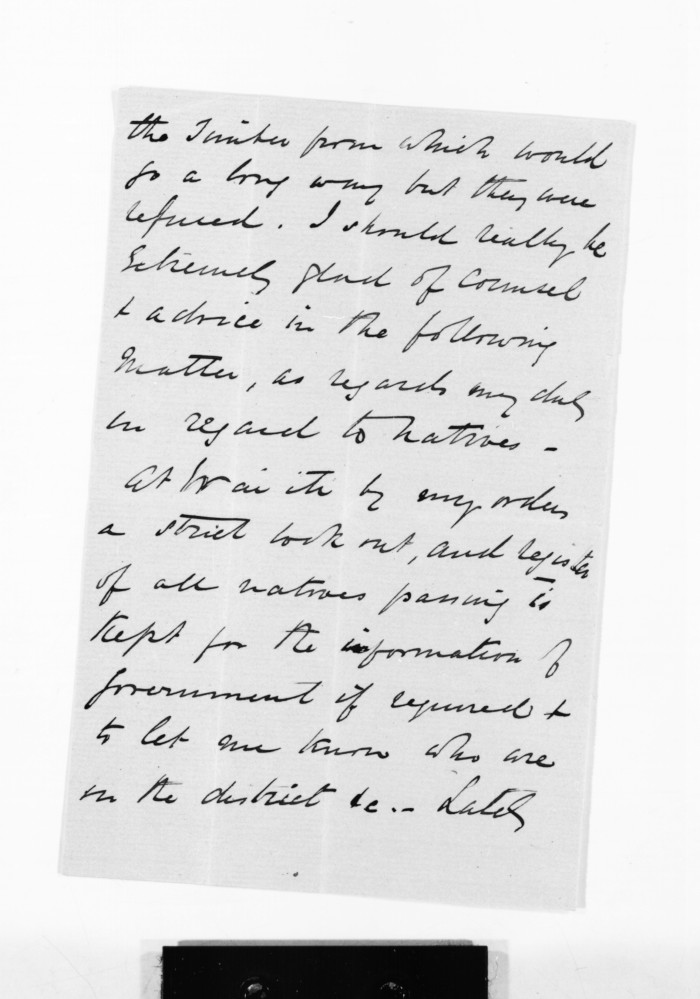 the Timber from which would
go a long way but they were
refused. I should really be
extremely glad of Counsel
& advice in the following
Matter, as regards my duty
in regard to Natives -
At Wai iti by my orders
a strict look out, and register
of all natives passing is
kept for the information of
Government if required &
to let me know who are
in the district &c. - Lately